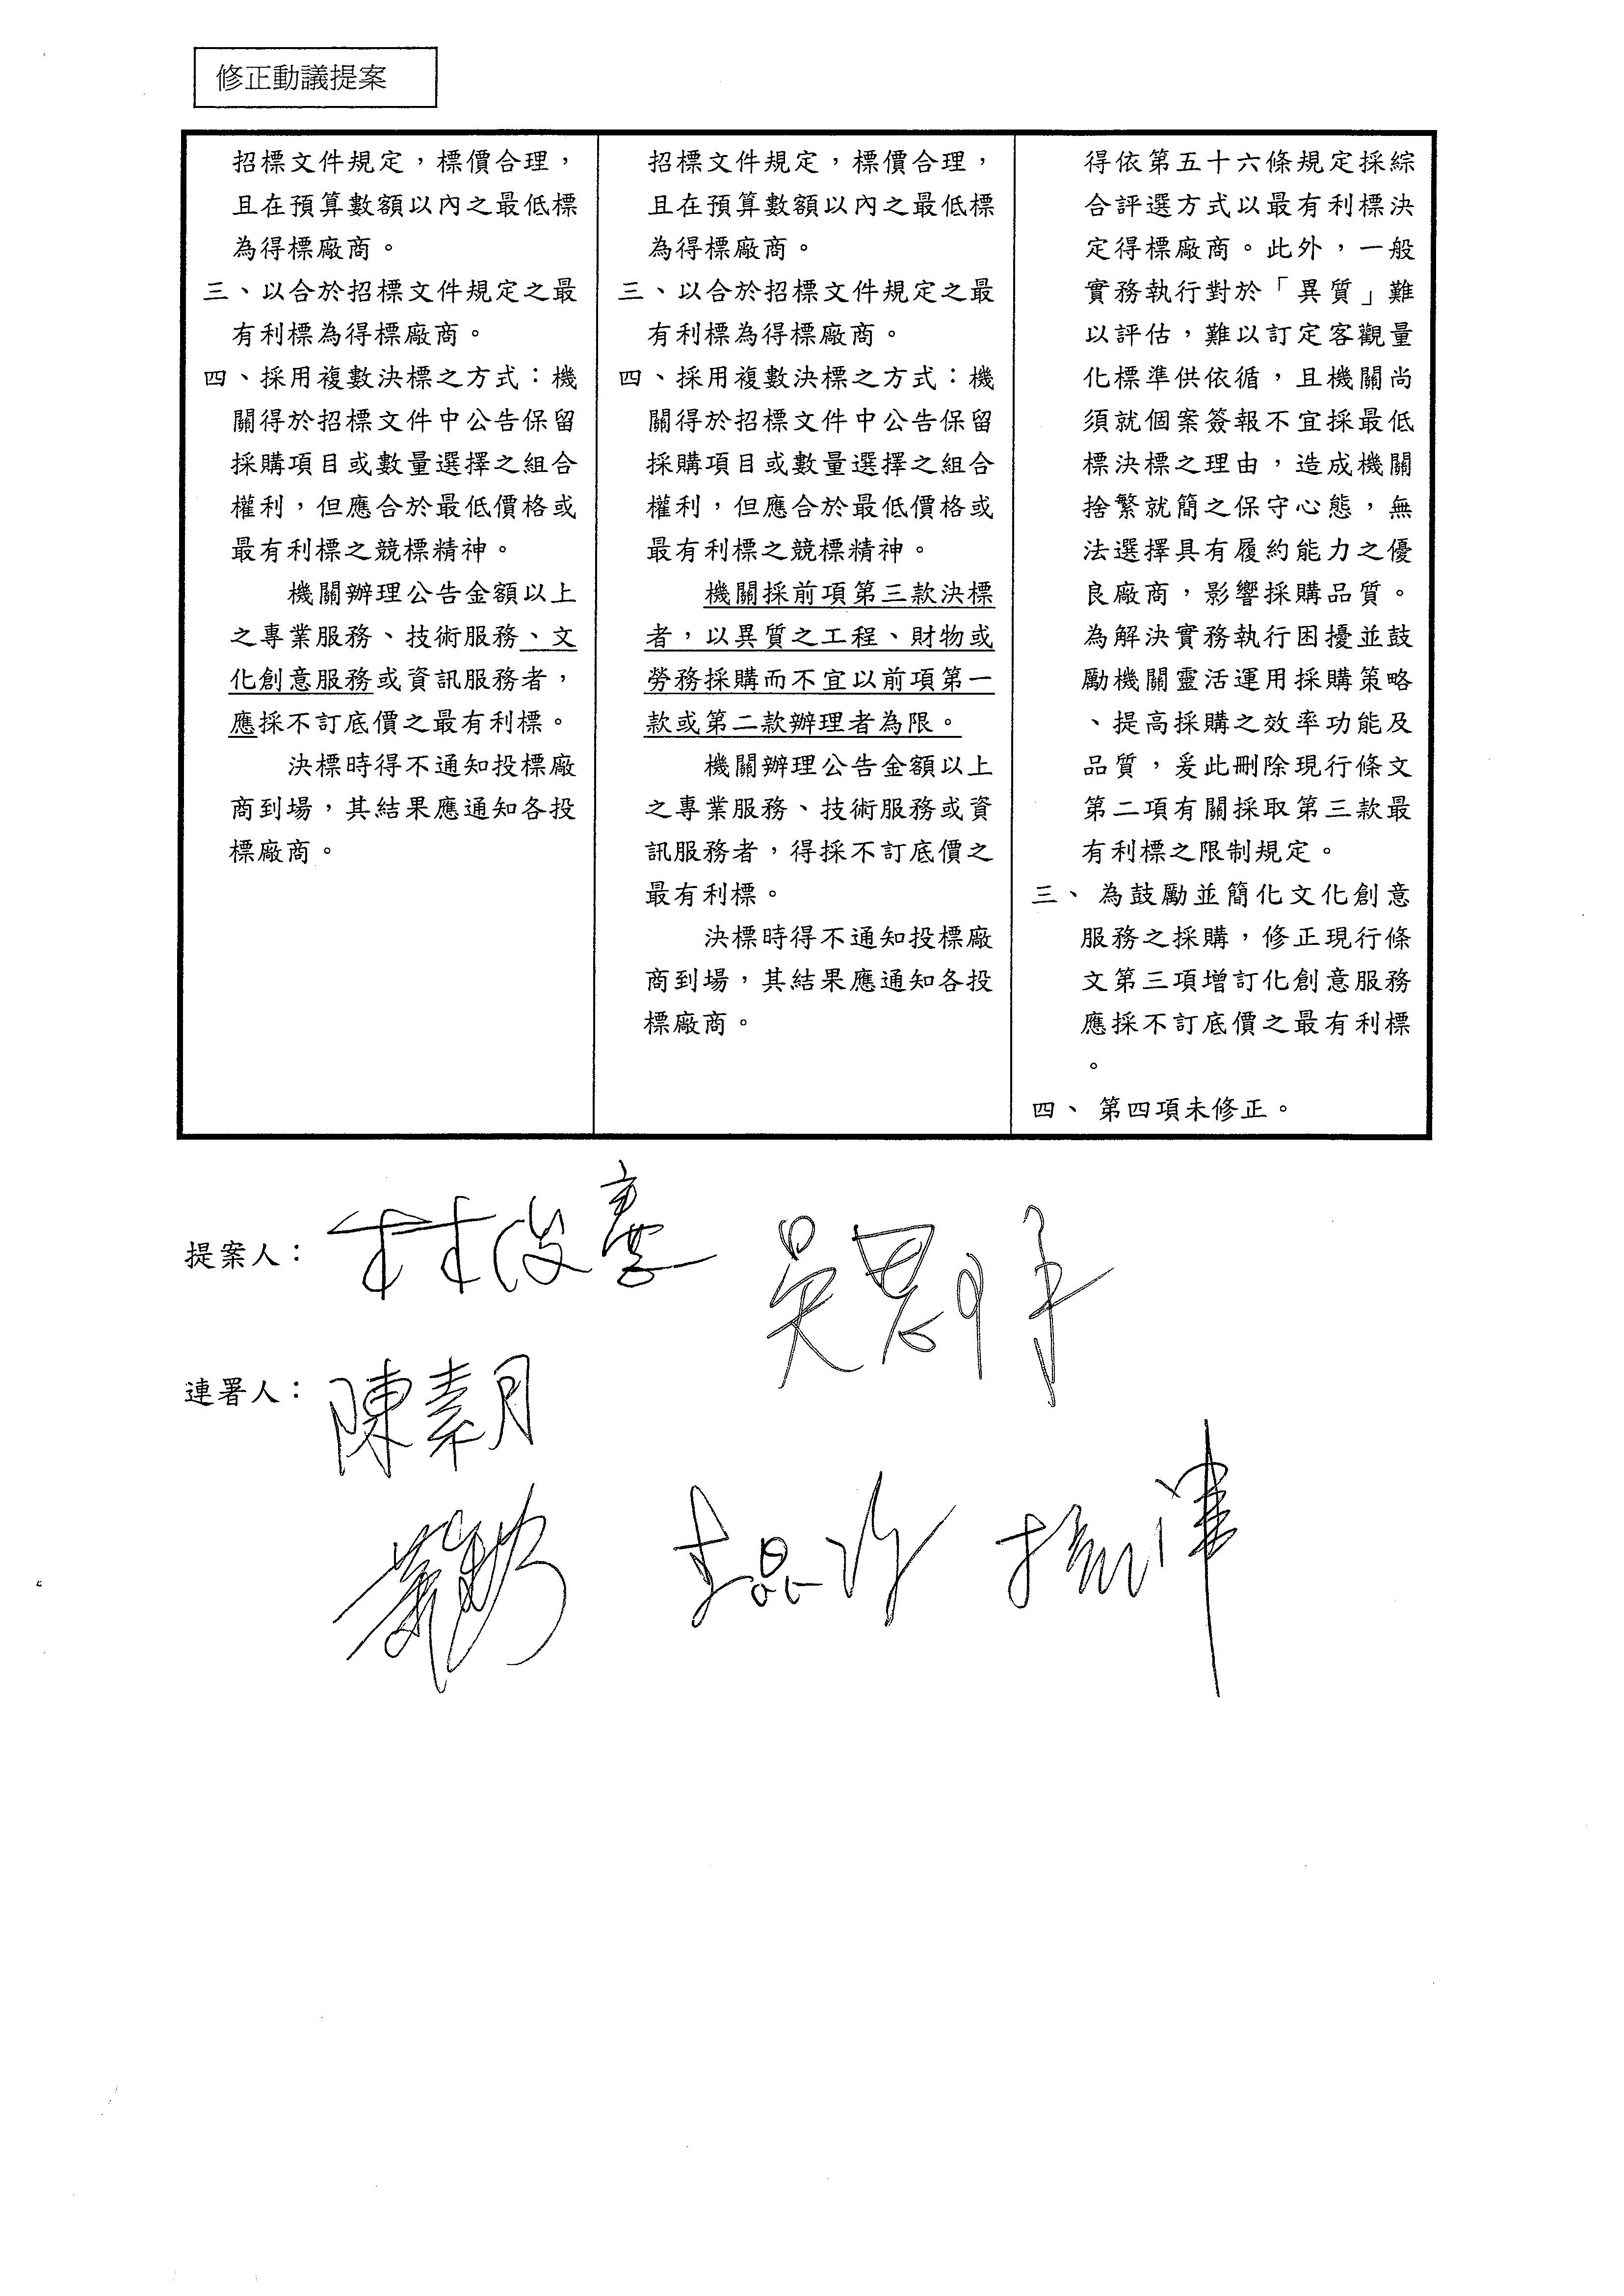 修正動議提案
招標文件規定，標價合理，
且在預算數額以內之最低標
為得標廠商。
三、以合於招標文件規定之最
有利標為得標廠商。
四、採用複數決標之方式：機
關得於招標文件中公告保留
採購項目或數量選擇之組合
權利，但應合於最低價格或
最有利標之競標精神。
機關辦理公告金額以上
之專業服務、技術服務、文
化創意服務或資訊服務者，
應採不訂底價之最有利標。
決標時得不通知投標廠
商到場，其結果應通知各投
標廠商。
招標文件規定，標價合理，
且在預算數額以內之最低標
為得標廠商。
三、以合於招標文件規定之最
有利標為得標廠商。
四、採用複數決標之方式：機
關得於招標文件中公告保留
採購項目或數量選擇之組合
權利，但應合於最低價格或
最有利標之競標精神。
機關採前項第三款決標
者，以異質之工程、財物或
勞務採購而不宜以前項第一
款或第二款辦理者為限。
機關辦理公告金額以上
之專業服務、技術服務或資
訊服務者，得採不訂底價之
最有利標。
決標時得不通知投標廠
商到場，其結果應通知各投
標廠商。
得依第五十六條規定採綜
合評選方式以最有利標決
定得標廠商。此外，一般
實務執行對於「異質」難
以評估，難以訂定客觀量
化標準供依循，且機關尚
須就個案簽報不宜採最低
標決標之理由，造成機關
捨繁就簡之保守心態，無
法選擇具有履約能力之優
良廠商，影響採購品質。
為解決實務執行困擾並鼓
勵機關靈活運用採購策略
、提高採購之效率功能及
品質，爰此刪除現行條文
第二項有關採取第三款最
有利標之限制規定。
三、為鼓勵並簡化文化創意
服務之採購，修正現行條
文第三項增訂化創意服務
應採不訂底價之最有利標
。
四、第四項未修正。
提案人：
連署人：陳素月